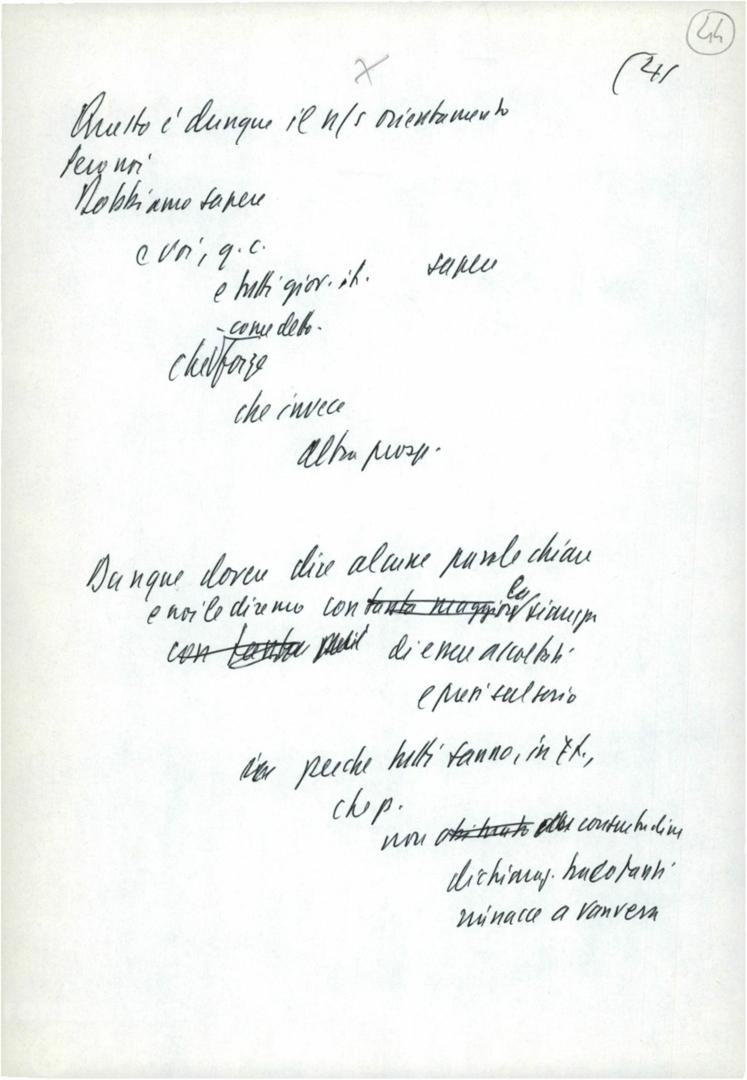 44
(41
Questo è dunque il n/s orientamento
Però noi
Dobbiamo sapere
e voi, q. c.
e tutti gior. it. sapere
- come detto -
che forze
che invece
altra prosp.
Dunque dovere dire alcune parole chiare
e noi le diremo con tanta maggiore la
con tanta di essere ascoltati
e presi sul serio
perché tutti sanno, in It.,
che p.
non consuetudine
dichiaraz. tracotanti
minacce a vanvera